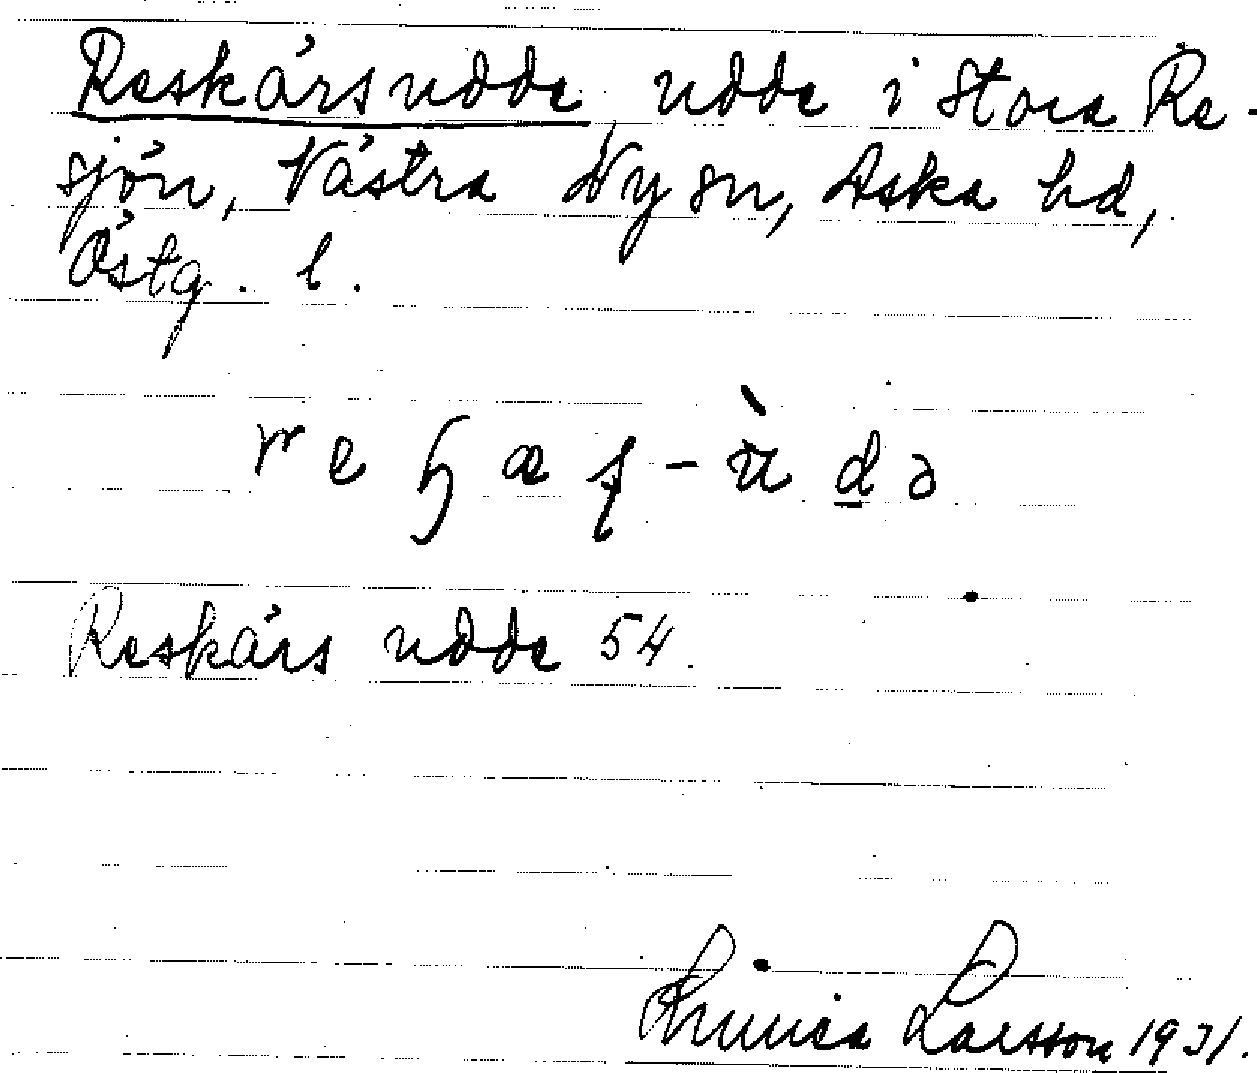 Reskärsudde, udde i Stora Re-
sjön, Västra Ny sn, Aska hd,
Östg. l.
Reskärs udde 54.
Larsson 1931.